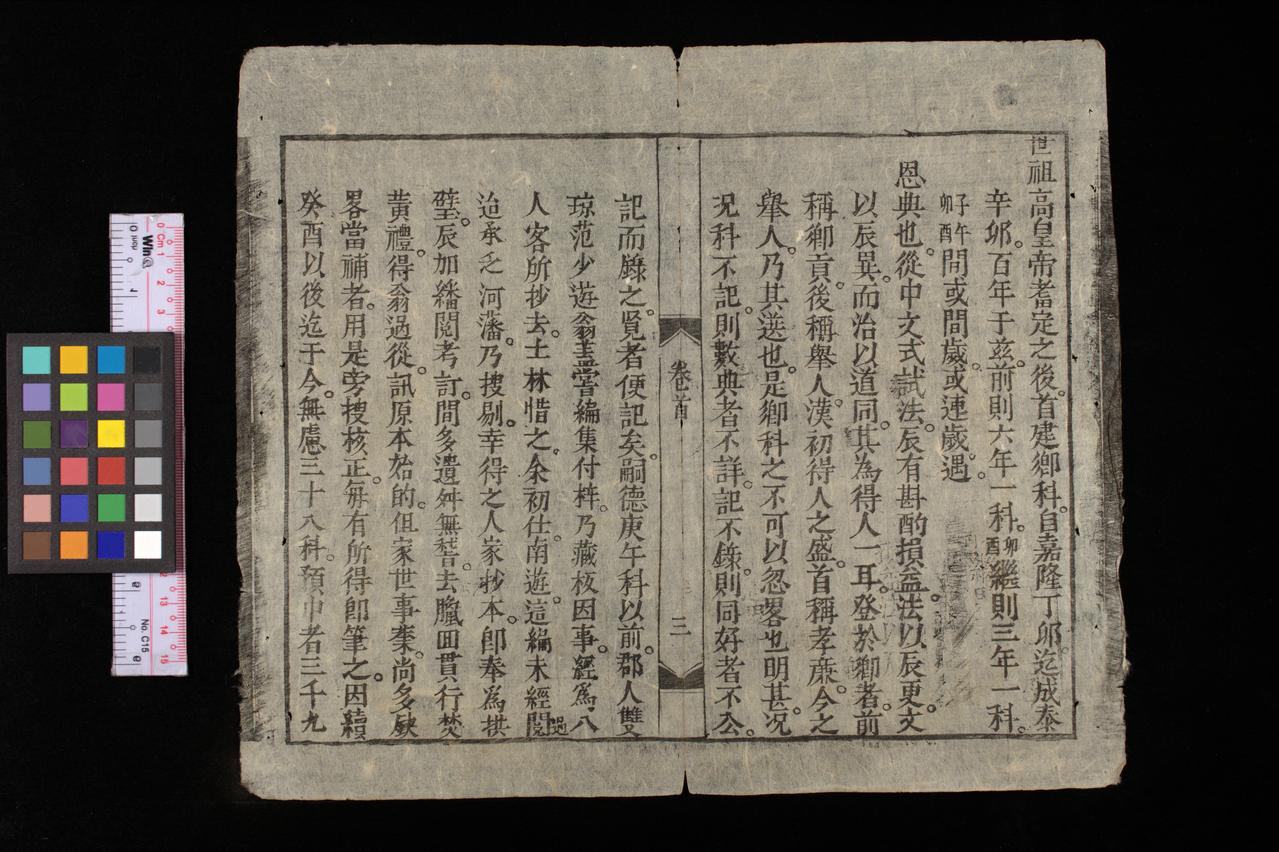 世祖高皇帝耆定之後。首建鄉科。自嘉隆丁卯。迄成泰
辛卯。百年于玆。前則六年一科。卯酉繼則三年一科。
子午卯酉間或間歲。或連歲。遇
恩典也。從中文式試法。辰有斟酌損益。法以辰更。文
以辰異。而治以道同。其為得人一耳。登於鄉者。前
稱鄉貢。後稱舉人。漢初得人之盛。首稱孝廉。今之
舉人。乃其選也。是鄉科之不可以忽畧也明甚。况
況科不記。則數典者不詳。記不錄。則同好者不公。
卷首
三
記而錄之。覽者便記矣。嗣德庚午科以前。郡人雙
琼范少遊翁盖嘗編集付梓。乃藏板因事。經為八
人客所抄去。士林惜之。余初仕南遊。這編未經閱過
迨承乏河藩。乃搜剔。幸得之人家抄本。卽奉為拱
璧。辰加繙閱考訂。間多遺舛無稽。去臘回貫行焚
黃禮。得翁過從。訊原本始的。但家世事案。尚多缺
畧當補者。用是旁搜核正。每有所得卽筆之。因續
癸酉以後迄于今。無慮三十八科。預中者三千九